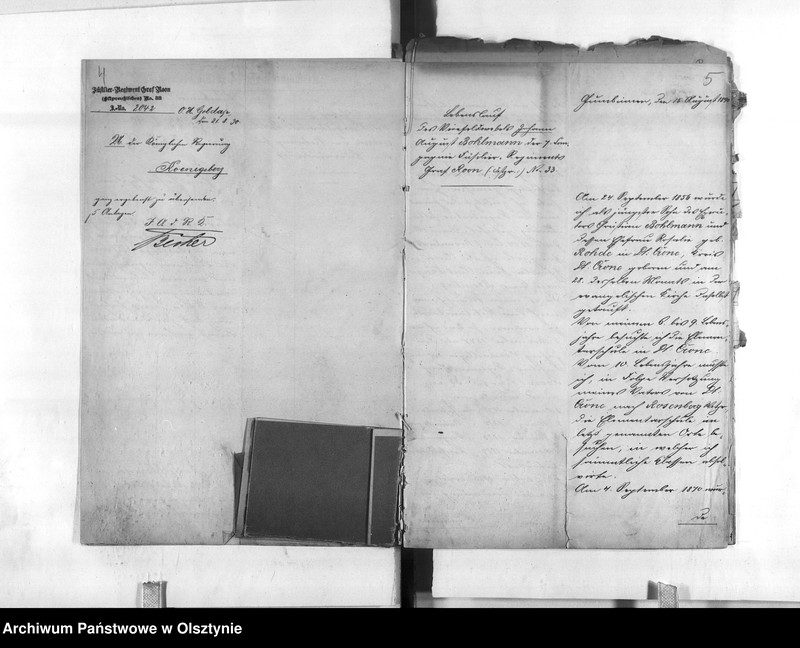 4
Füsilier-Regiment Graf Roon
(Ostpreußisches) No. 33
J.-No. 2042
O. U. Goldap,
den 21. 8.
der Königlichen Regierung
Koenigsberg
ganz ergebenst zu übersenden.
5 Anlagen
5
Gumbinnen, den 18. August
Lebenslauf
des Vizefeldwebels Johann
August Bohlmann der 7. Com
pagnie Füsilier-Regiments
Graf Roon (Ostpr.) No. 33
Am 24. September 1856 wurde
ich als jüngster Sohn des
Christian Bohlmann und
dessen Ehefrau Rosalie geb.
Rohde in Dt. Crone, Kreis
Dt. Crone geboren und am
28. desselben Monats in der
evangelischen Kirche daselbst
getauft.
Von meinem 6. bis 9. Lebens
jahre besuchte ich die Elemen
tarschule in Dt. Crone.
Vom 10. Lebensjahre mußte
ich, in Folge Versetzung
meines Vaters von Dt.
Crone nach Rosenberg Wstpr.
die Elementarschule am
letzt genannten Orte be
suchen, in welcher ich
sämmtliche Klassen absol
virte.
Am 4. September 1870 wur
de
Archiwum Państwowe w Olsztynie